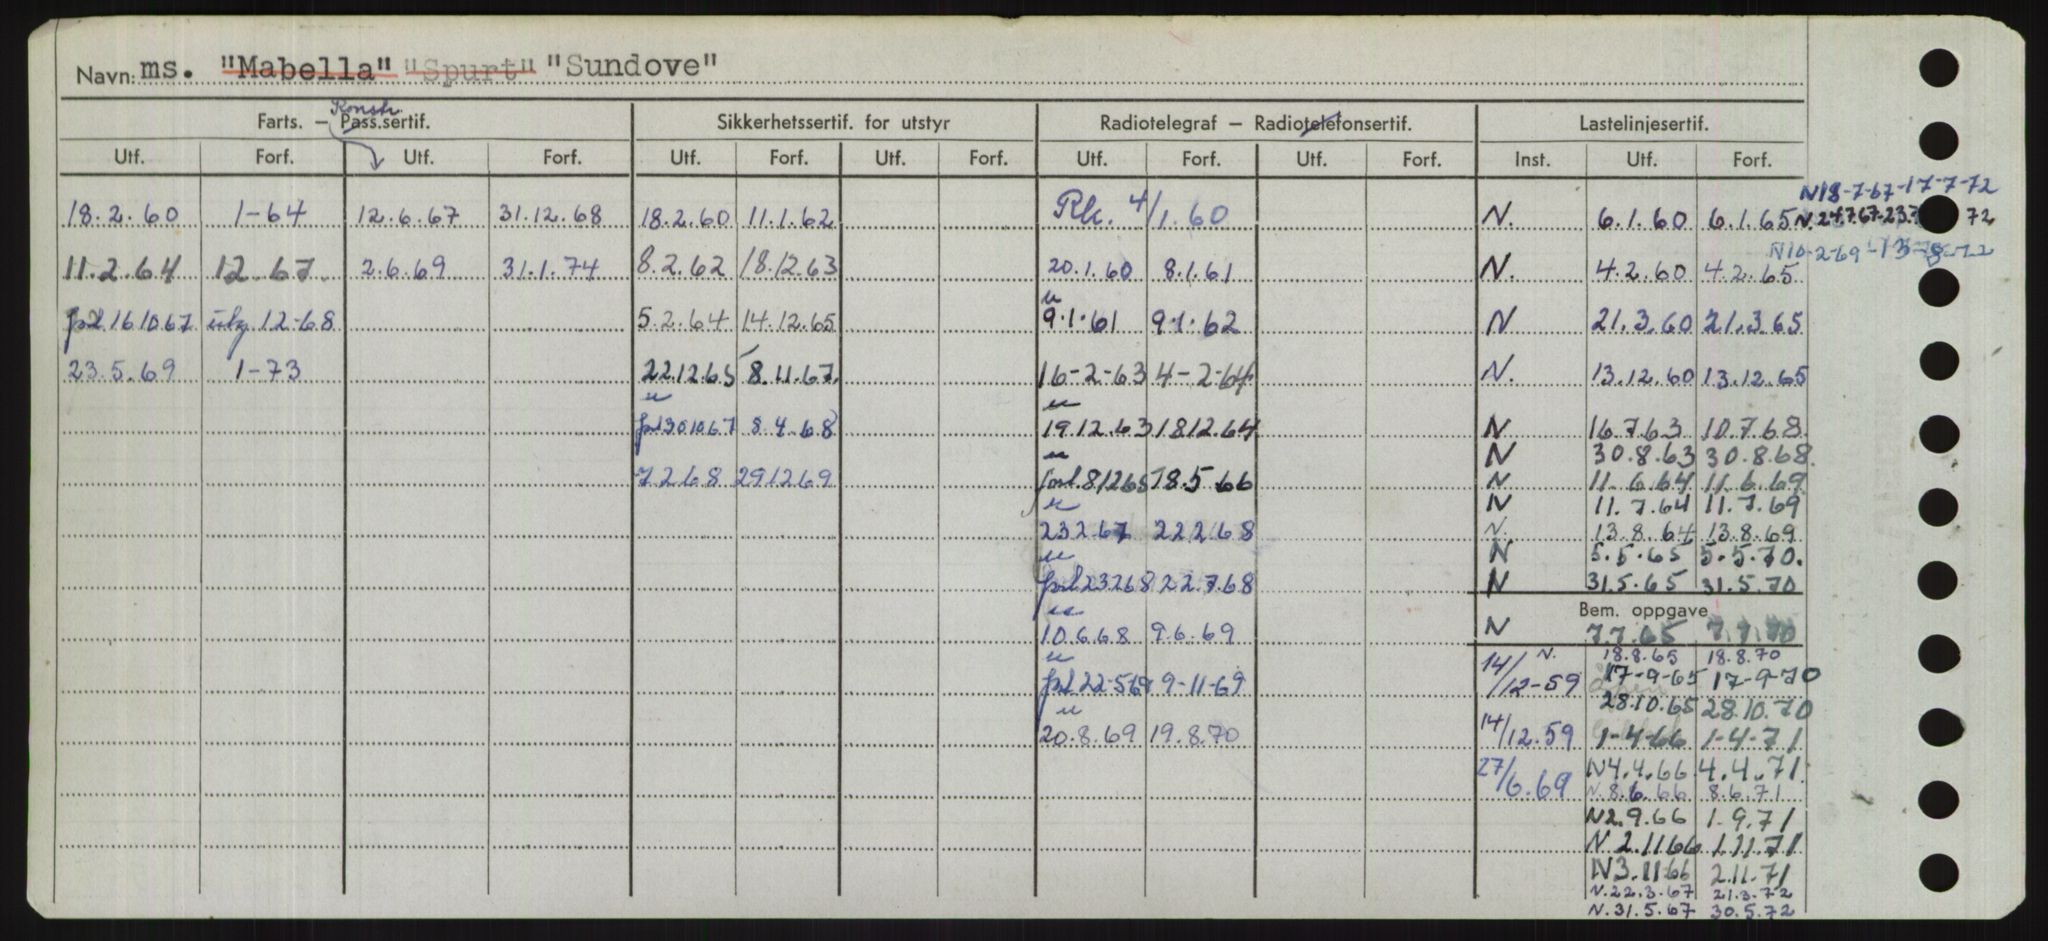 Navn: ms. "Mabella" "Spurt" "Sundove"
Konstr.
Farts. — Pass.sertif. Sikkerhetssertif. for utstyr Radiotelegraf — Radiotelefonsertif. Lastelinjesertif.
Utf. Forf. Utf. Forf. Utf. Forf. Utf. Forf. Utf. Forf. Utf. Forf. Inst. Utf. Forf.
N18-7-67-17-7-72
18.2.60 1-64 12.6.67 31.12.68 18.2.60 11.1.62 Rk. 4/1.60 N. 6.1.60 6.1.65 N. 72
11.2.64 12.67 2.6.69 31.1.74 8.2.62 18.12.63 20.1.60 8.1.61 N. 4.2.60 4.2.65
u
161067 utg 12-68 5.2.64 14.12.65 9.1.61 9.1.62 N 21.3.60 21.3.65
23.5.69 1-73 22.12.65 8.11.67. 16-2-63 4-2-64 N. 13.12.60 13.12.65
u u
301067 8.4.68 19.12.63 18.12.64 N 16.7.63 10.7.68
u N 30.8.63 30.8.68.
7268 291269 forl. 81265 18.5 66 N 11.6.64 11.6.69
u N 11.7.64 11.7.69
23267 22268 N. 13.8.64 13.8.69
u N 5.5.65 5.5.70.
23268 22.7.68 N 31.5.65 31.5.70
u Bem. oppgave
10.6.68 9.6.69 N 7.7.65 7.7.70
u N. 18.8.65 18.8.70
22-569 9-11-69 14/12-59 17-9-65 17-9-70
u 28.10.65 28.10.70
20.8.69 19.8.70 14/12.59 1-4-66 1-4-71
27/6.69 N4.4.66 4.4.71
N. 8.6.66 8.6.71
N2.9.66 1.9.71
N 2.1166 1.11.71
N3.11.66 2.11.71
N.22.3.67 21.3.72
N.31.5.67 30.5.72